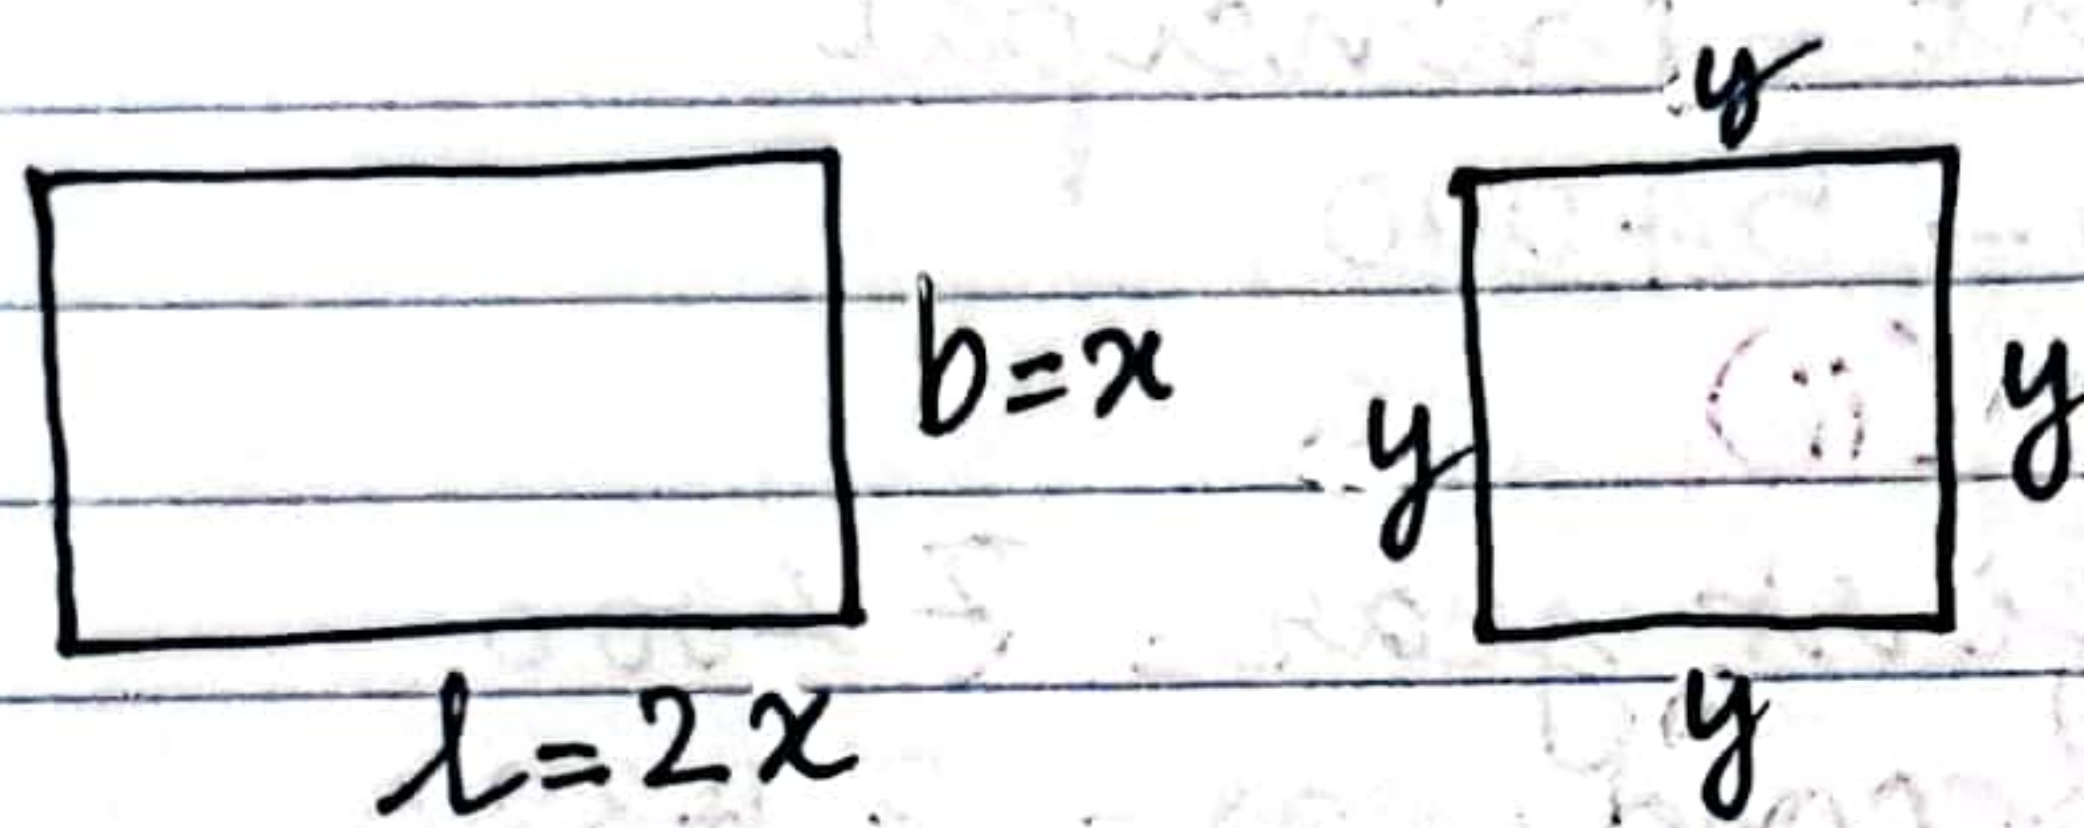 y
b=x
y
y
l=2x
y